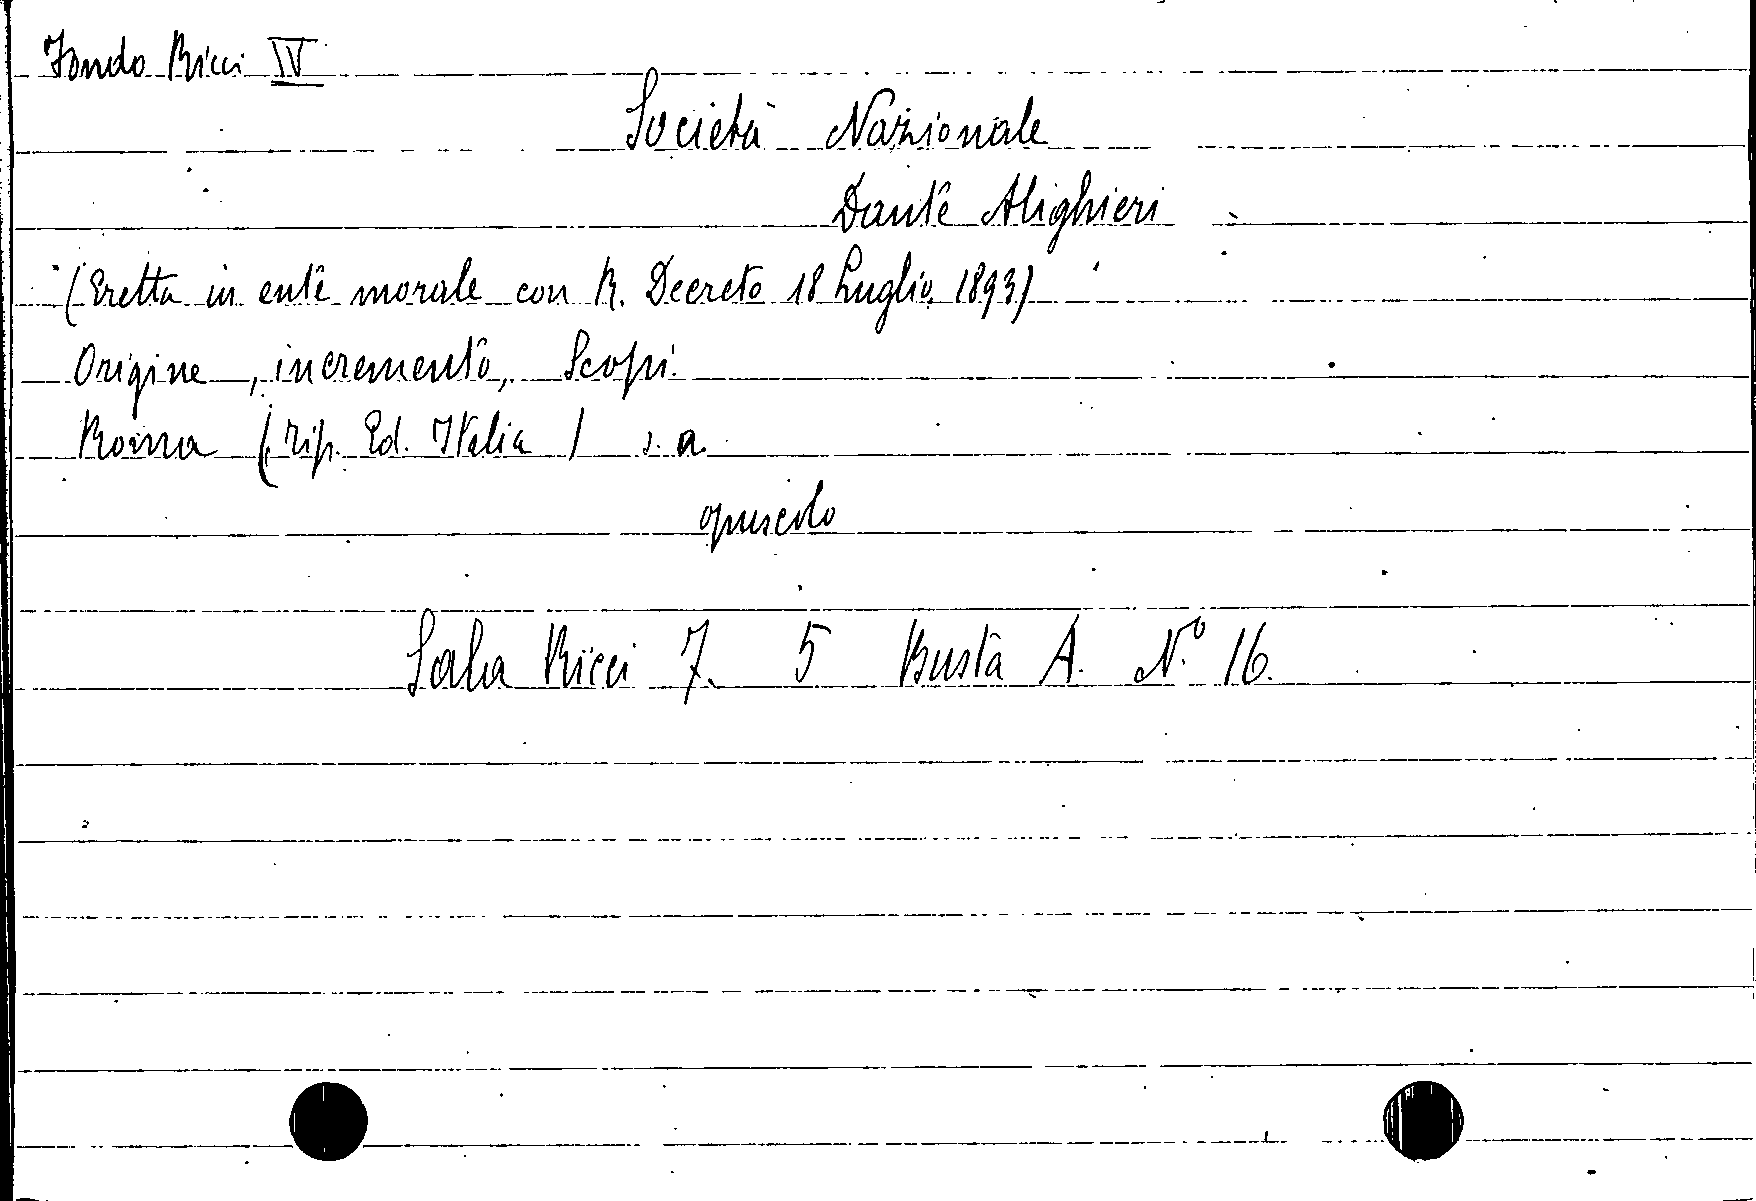 Fondo Ricci IV
Società Nazionale
Dante Alighieri
(Eretta in ente morale con R. Decreto 18 Luglio 1893)
Origine, incremento, Scopi.
Roma (Tip. Ed. Italia) s.a.
opuscolo
Sala Ricci 7. 5 Busta A. N.° 16.